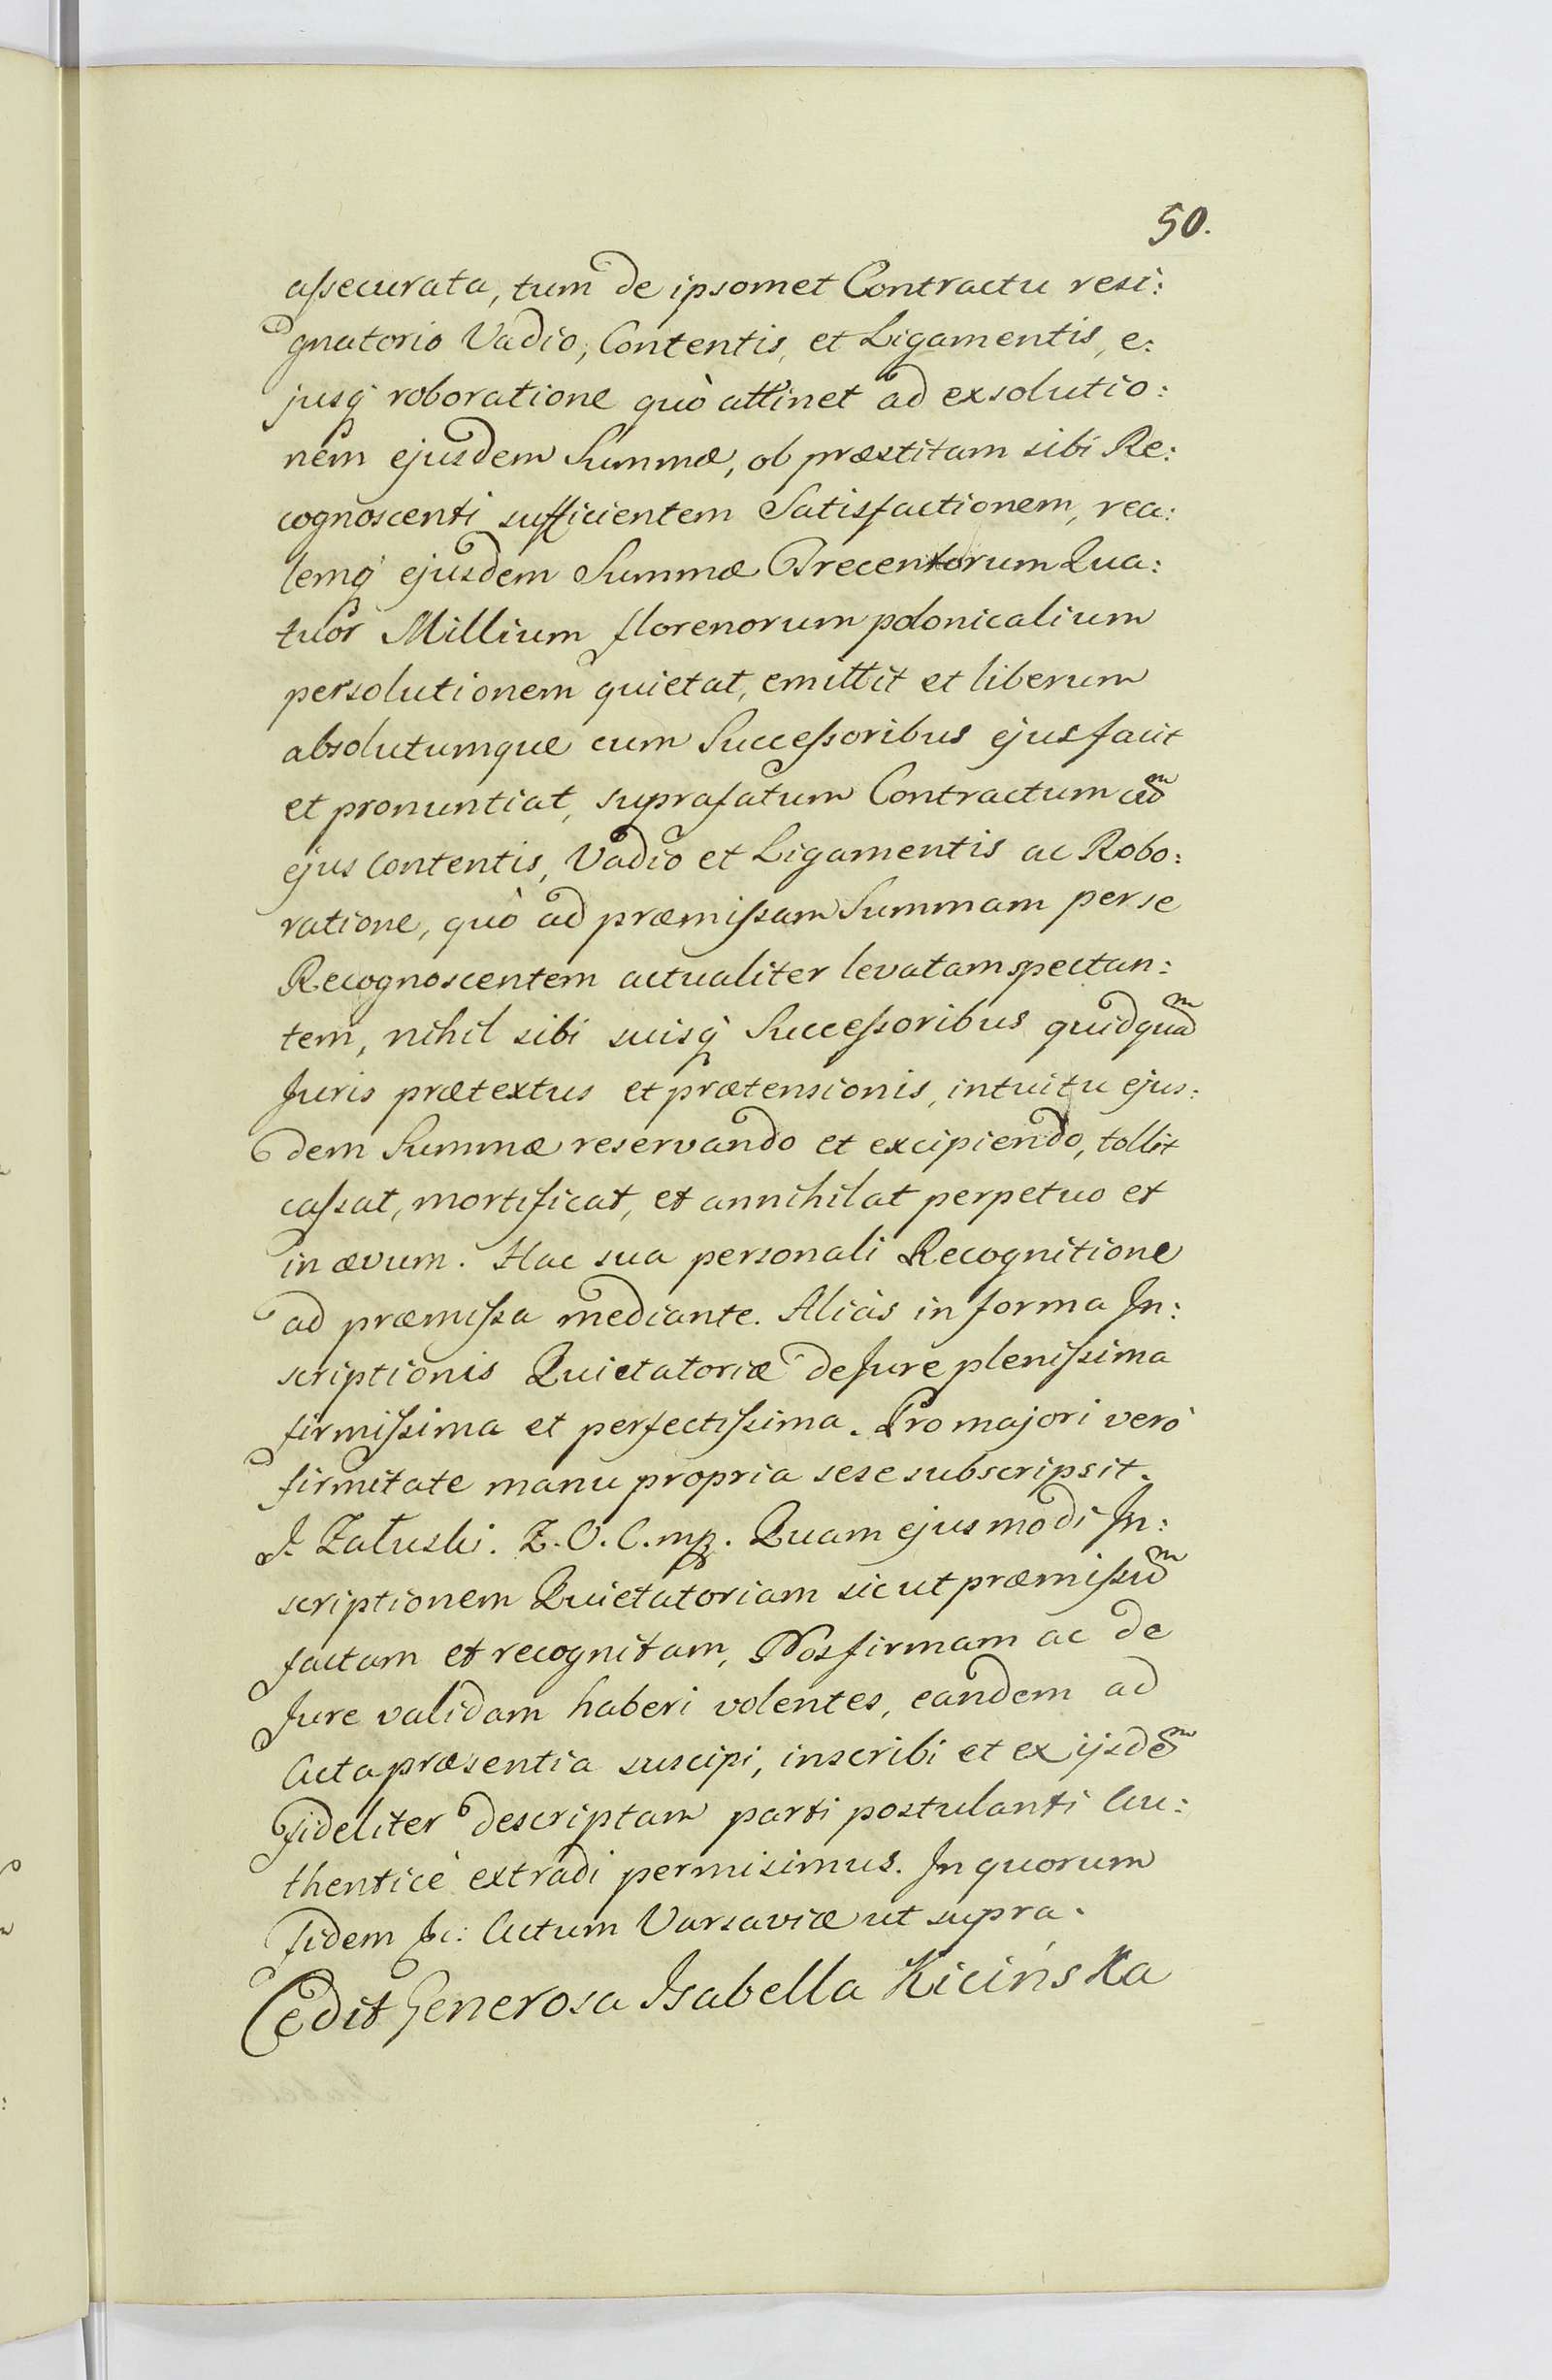 50.
assecurata, tum de ipsomet Contractu resi:
gnatorio Vadio, Contentis, et Ligamentis, e:
jusq́ roboratione quò attinet ad exsolutio:
nem ejusdem Summæ, ob præstitam sibi Re:
cognoscenti sufficientem Satisfactionem, rea:
lemq́ ejusdem Summæ Trecentorum Qua:
tuor Millium florenorum polonicalium
persolutionem quietat, emittit et liberum
absolutumque cum Successoribus ejus facit
et pronuntiat, suprafatum Contractum cũ
ejus Contentis, Vadio et Ligamentis ac Robo:
ratione, quò ad præmissam Summam per se
Recognoscentem actualiter levatam spectan:
tem, nihil sibi suisq́ Successoribus quidquã
Juris prætextus et prætensionis, intuitu ejus:
dem Summæ reservando et excipiendo, tollit
cassat, mortificat, et annihilat perpetuo et
in ævum. Hac sua personali Recognitione
ad præmissa mediante. Aliàs in forma In:
scriptionis Quietatoriæ de Jure plenissima
firmissima et perfectissima. Pro majori verò
firmitate manu propria sese subscripsit.
J. Załuski. Z. O. C. mp. Quam ejusmodi In:
scriptionem Quietatoriam sicut præmissũ
factam et recognitam, Nos firmam ac de
Jure validam haberi volentes, eandem ad
Acta præsentia suscipi, inscribi et ex ijsdẽ
fideliter descriptam parti postulanti Au:
thenticè extradi permisimus. In quorum
fidem &c: Actum Varsaviæ ut supra.
Cedit Generosa Isabella Kicińska